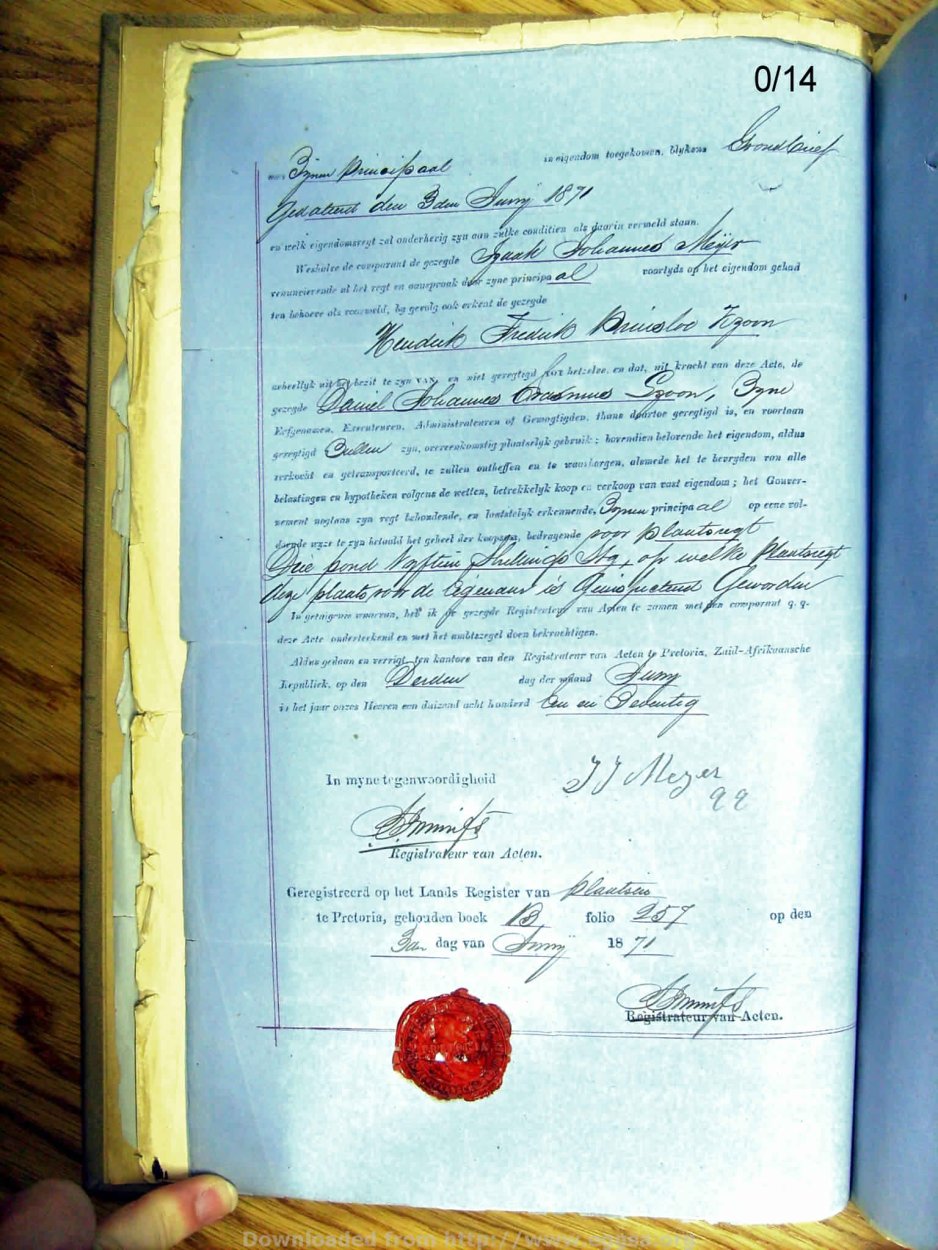 0/14
aan Zynen Principaal in eigendom toegekomen, blykens Grondbrief
Gedateerd den 3den Juny 1871
en welk eigendomsregt zal onderhevig zyn aan zulke conditien als daarin vermeld staan.
Weshalve de comparant de gezegde Izaak Johannes Meyer
renuncierende al het regt en aanspraak door zyne principaal voortyds op het eigendom gehad
ten behoeve als voormeld, by gevolg ook erkent de gezegde
Hendrik Fredrik Prinsloo Hzoon
geheellyk uit het bezit te zyn van, en niet geregtigd tot hetzelve, en dat, uit kracht van deze Acte, de
gezegde Daniel Johannes Erasmus Szoon, Zyne
Erfgenamen, Executeuren, Administrateuren of Gemagtigden, thans daartoe geregtigd is, en voortaan
geregtigd Zullen zyn, overeenkomstig plaatselyk gebruik; bovendien belovende het eigendom, aldus
verkocht en getransporteerd, te zullen ontheffen en te waarborgen, alsmede het te bevryden van alle
belastingen en hypotheken volgens de wetten, betrekkelyk koop en verkoop van vast eigendom; het Gouver-
nement nogtans zyn regt behoudende, en laatstelyk erkennende, Zynen principaal op eene vol-
doende wyze te zyn betaald het geheel der koopsom, bedragende voor Plaatsregt
Drie pond Vyftien Shillings Stg, op welke Plaatsregt
deze plaats voor de Eigenaar is Geinspecteerd Geworden
In getuigenis waarvan, heb ik de gezegde Registrateur van Acten te zamen met den comparant q. q.
deze Acte onderteekend en met het ambtszegel doen bekrachtigen.
Aldus gedaan en verrigt, ten kantore van den Registrateur van Acten te Pretoria, Zuid-Afrikaansche
Republiek, op den Derden dag der maand Juny
in het jaar onzes Heeren een duizend acht honderd Een en Zeventig
In myne tegenwoordigheid I J Meyer
q q
Registrateur van Acten.
Geregistreerd op het Lands Register van Plaatsen
te Pretoria, gehouden boek B, folio 257 op den
3de dag van Juny 1871
Registrateur van Acten.
Downloaded from http://www.eggsa.org